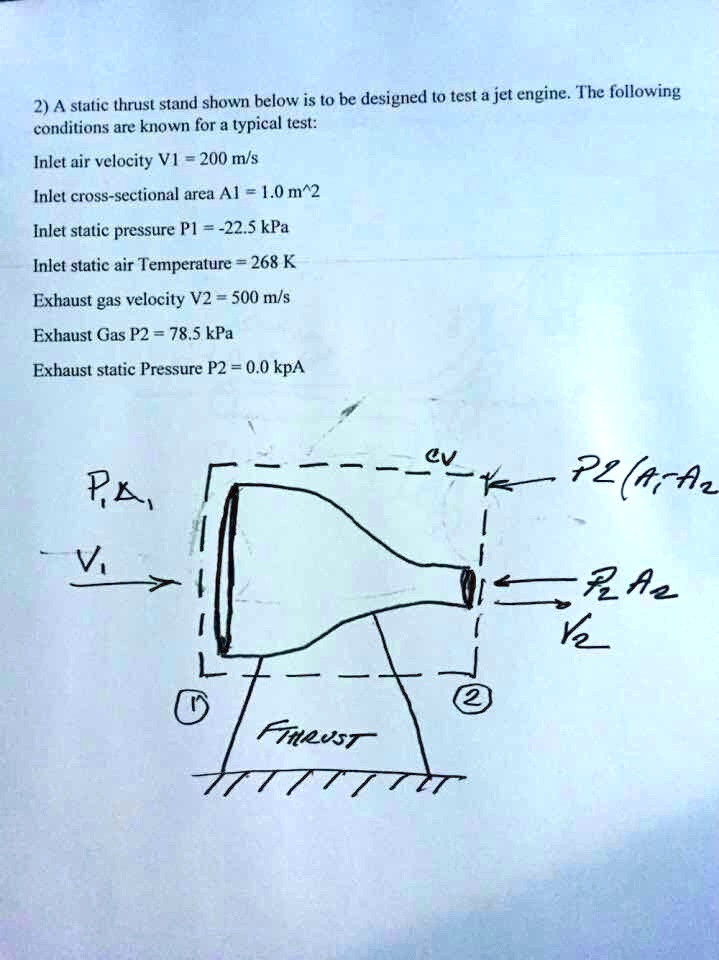 2) A static thrust stand shown below is to be designed to test a jet engine. The following
conditions are known for a typical test:
Inlet air velocity V1 = 200 m/s
Inlet cross-sectional area A1 = 1.0 m^2
Inlet static pressure P1 = -22.5 kPa
Inlet static air Temperature = 268 K
Exhaust gas velocity V2 = 500 m/s
Exhaust Gas P2 = 78.5 kPa
Exhaust static Pressure P2 = 0.0 kpA
CV
P2(A1-A2
P1A1
V1
P2 A2
V2
1
2
FTHRUST